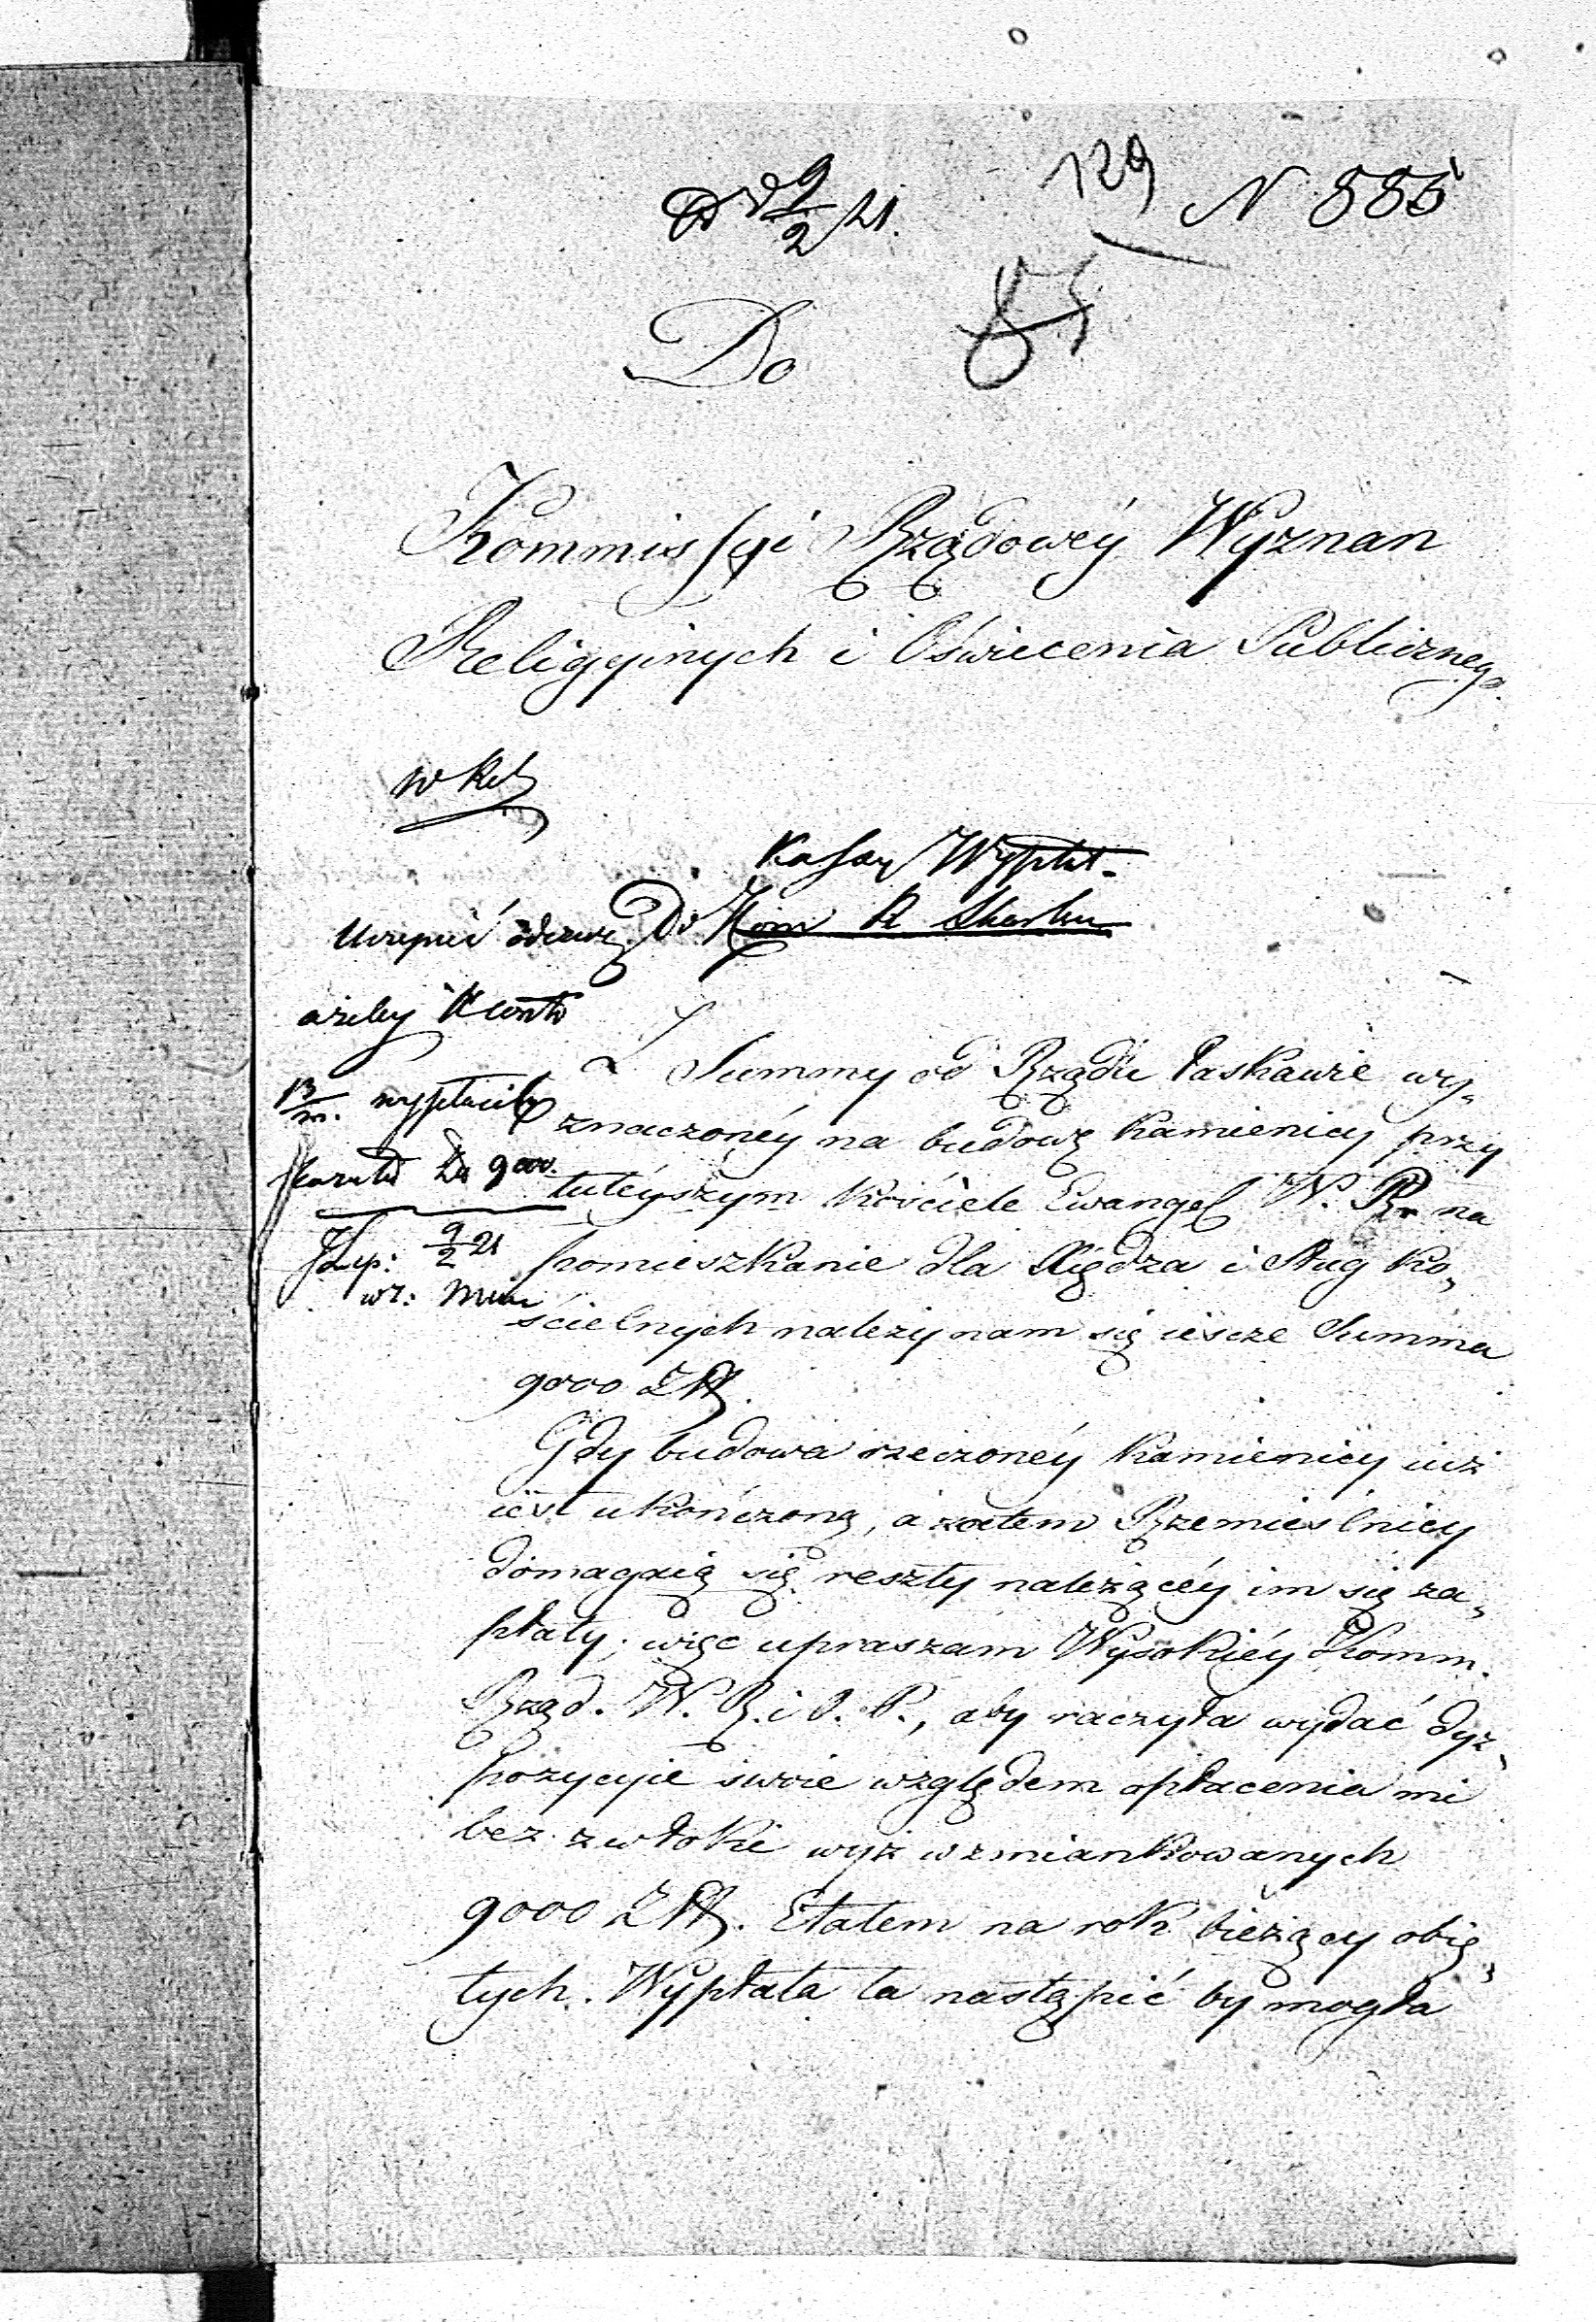 9/2 21.
129
N 886
85
Do
Kommissyi Rządowéy Wyznan
Religyinych i Oświecenia Publicznego.
Kassy Wypłat.
uczynić odezwę Do Kom R Skarbu
ażeby
wypłaciła
9000.
9/2 21
Z Summy od Rządu łaskawie wy„
znaczonéy na budowę Kamienicy przy
tuteyszym Kościele Ewangel W. R. na
pomieszkanie dla Xiędza i Sług Ko„
ścielnych należy nam się ieszcze Summa
9000 Złt.
Gdy budowa rzeczonéy Kamienicy iuż
iest ukończoną, a zatem Rzemieślnicy
domagaią się reszty należącéy im się za„
płaty, więc upraszam Wysokiéy Komm.
Rząd. W. R. i O. P., aby raczyła wydać dyz„
pozycyie swoie względem opłacenia mi
bez zwłokie wyż wzmiankowanych
9000 Złt. Etatem na rok bieżący obię„
tych. Wypłata ta nastąpić by mogła